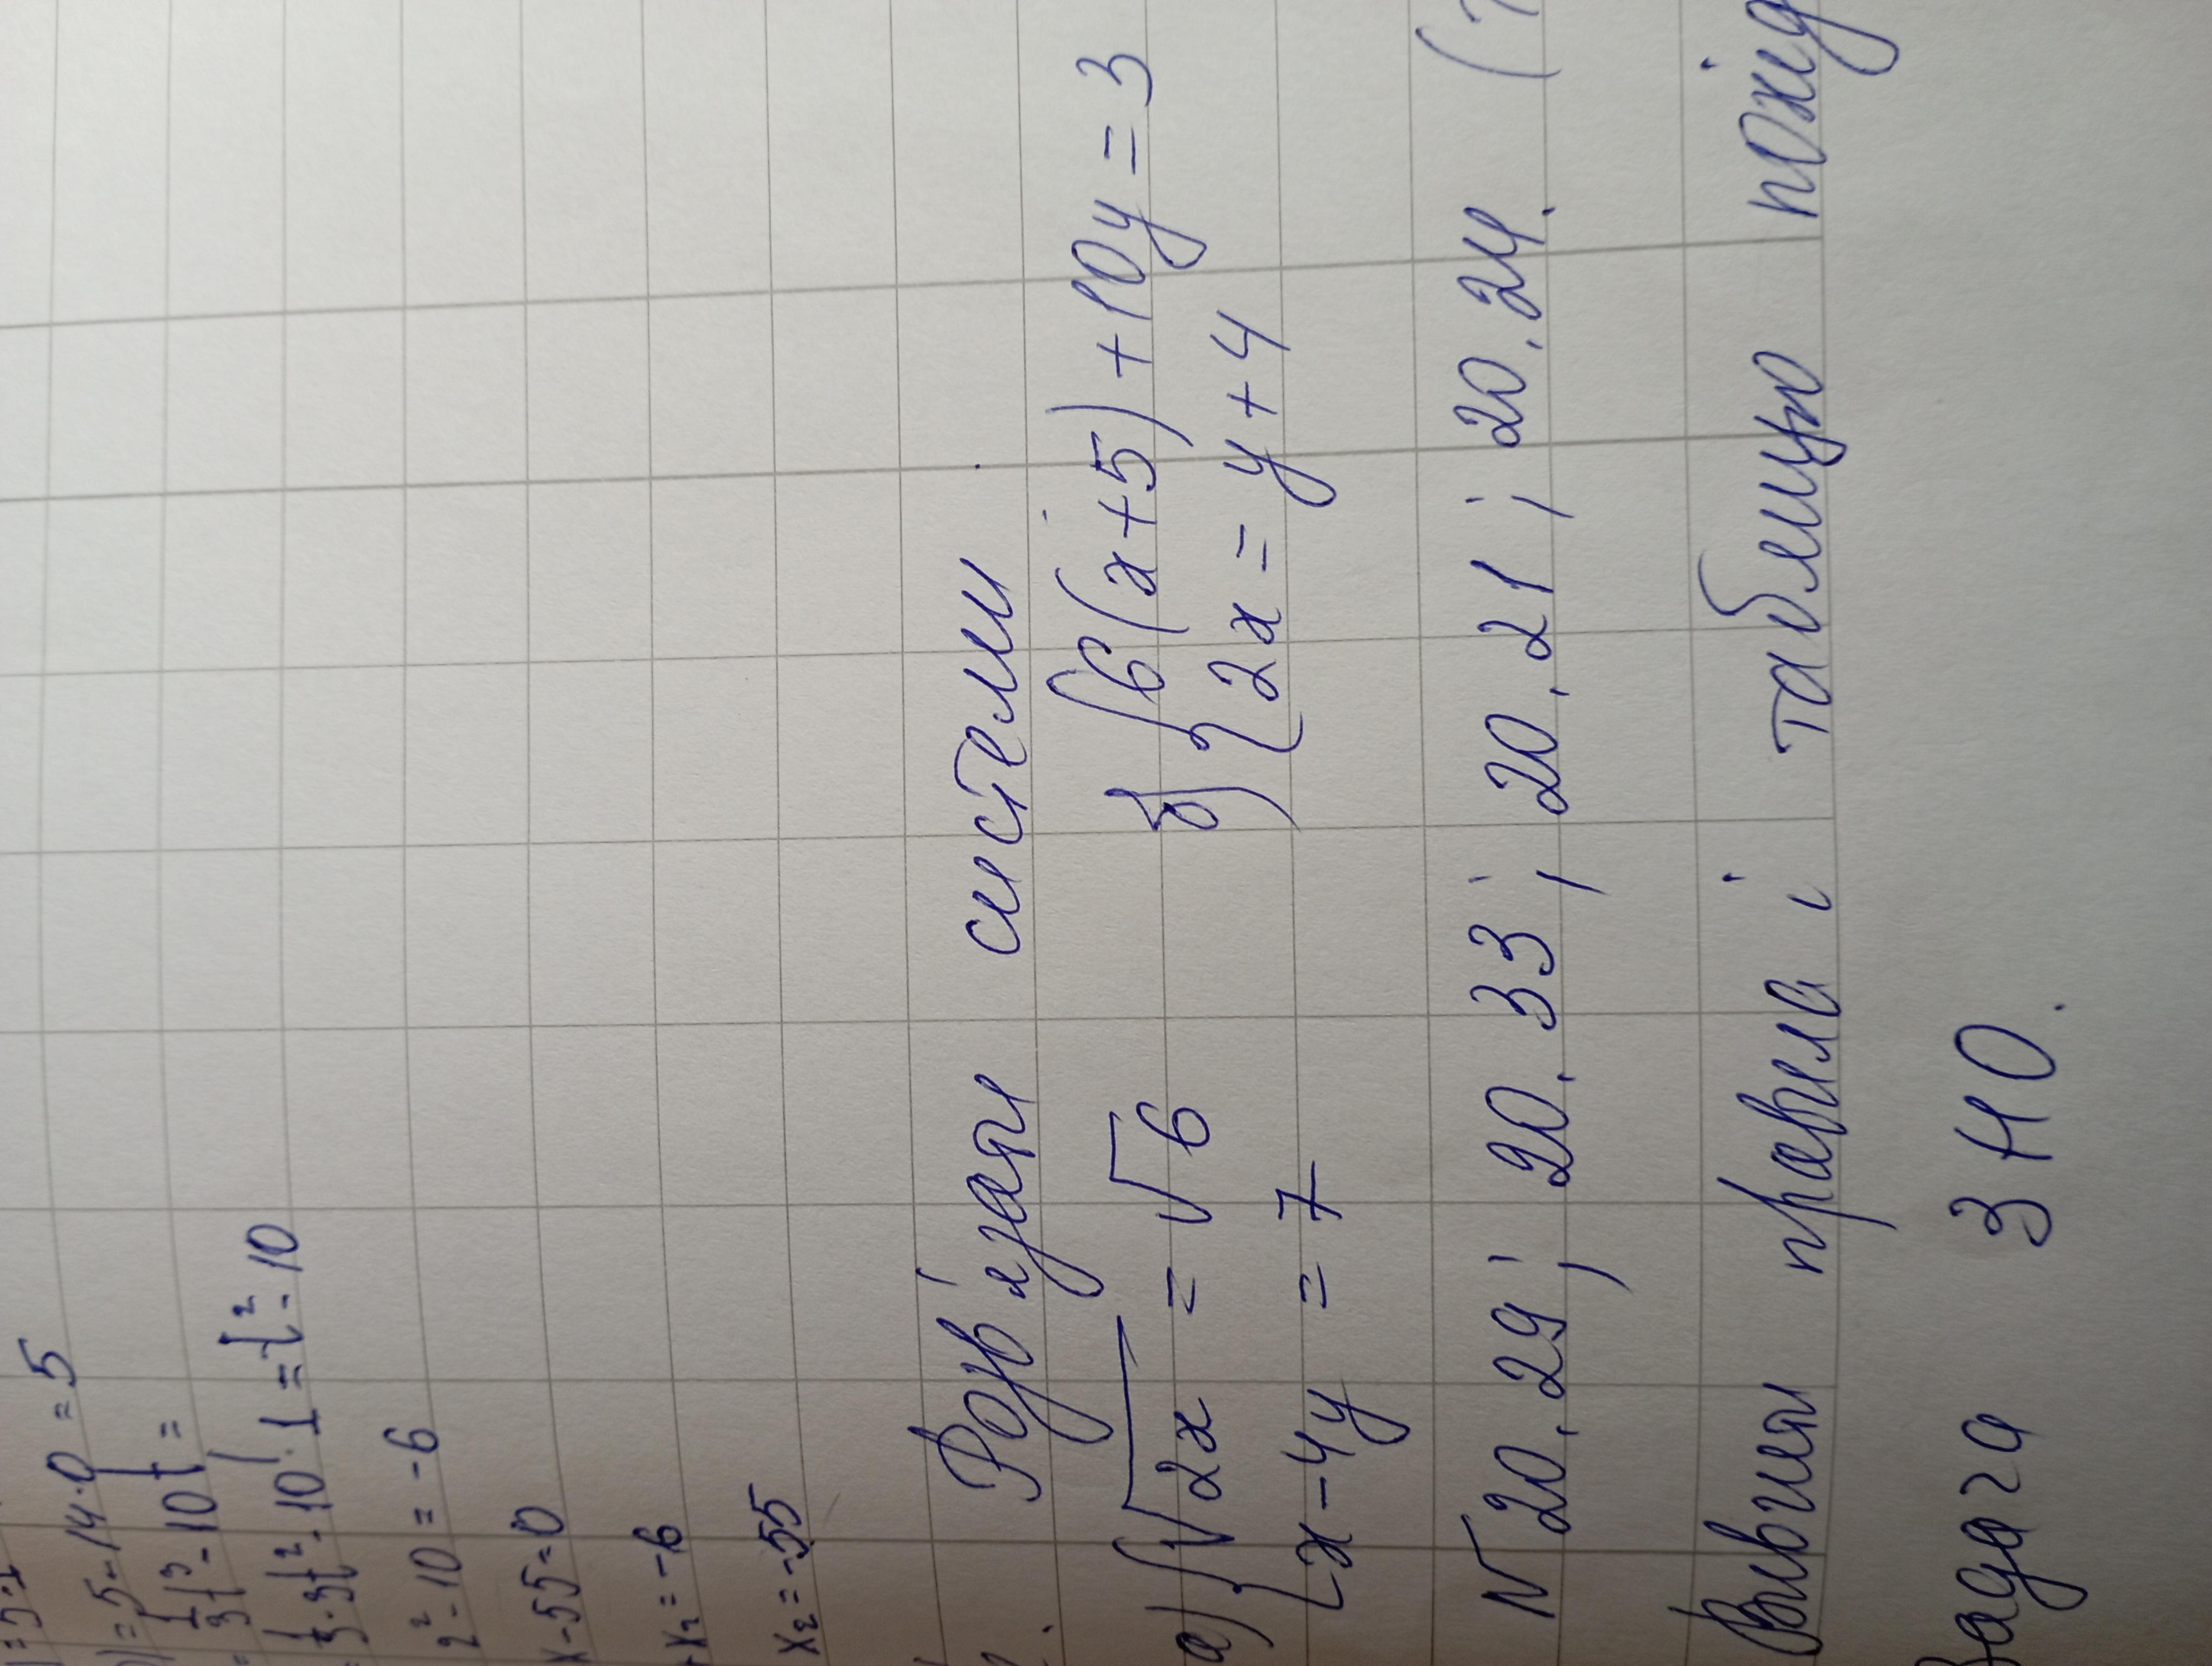 = 5 - 14·0 = 5
1/3 t³ - 10t =
1/3 · 3t² - 10 · 1 = t² - 10
2² - 10 = -6
x - 55 = 0
x₁ = -6
x₂ = -55
Розв'язати системи
а) { √2x = √6
x - 4y = 7
б) { 6(x+5) + 10y = 3
2x = y + 4
N 20.29; 20.33; 20.21; 20.24. (
Вивчити правила і таблицю похід
Задача ЗНО.